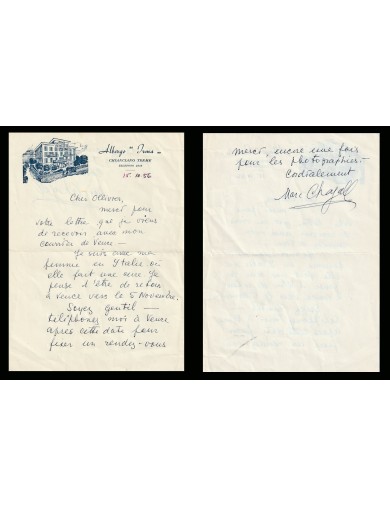 Albergo "Irma"
CHIANCIANO TERME
15.10.56
Cher Ollivier,
merci pour
votre lettre que je viens
de recevoir avec mon
courrier de Vence —
Je suis avec ma
femme en Italie où
elle fait une cure. Je
pense d'être de retour
à Vence vers le 5 Novembre.
Soyez gentil —
téléphonez moi à Vence
après cette date pour
fixer un rendez-vous
merci, encore une fois
pour les photographies.
Cordialement
Marc Chagall